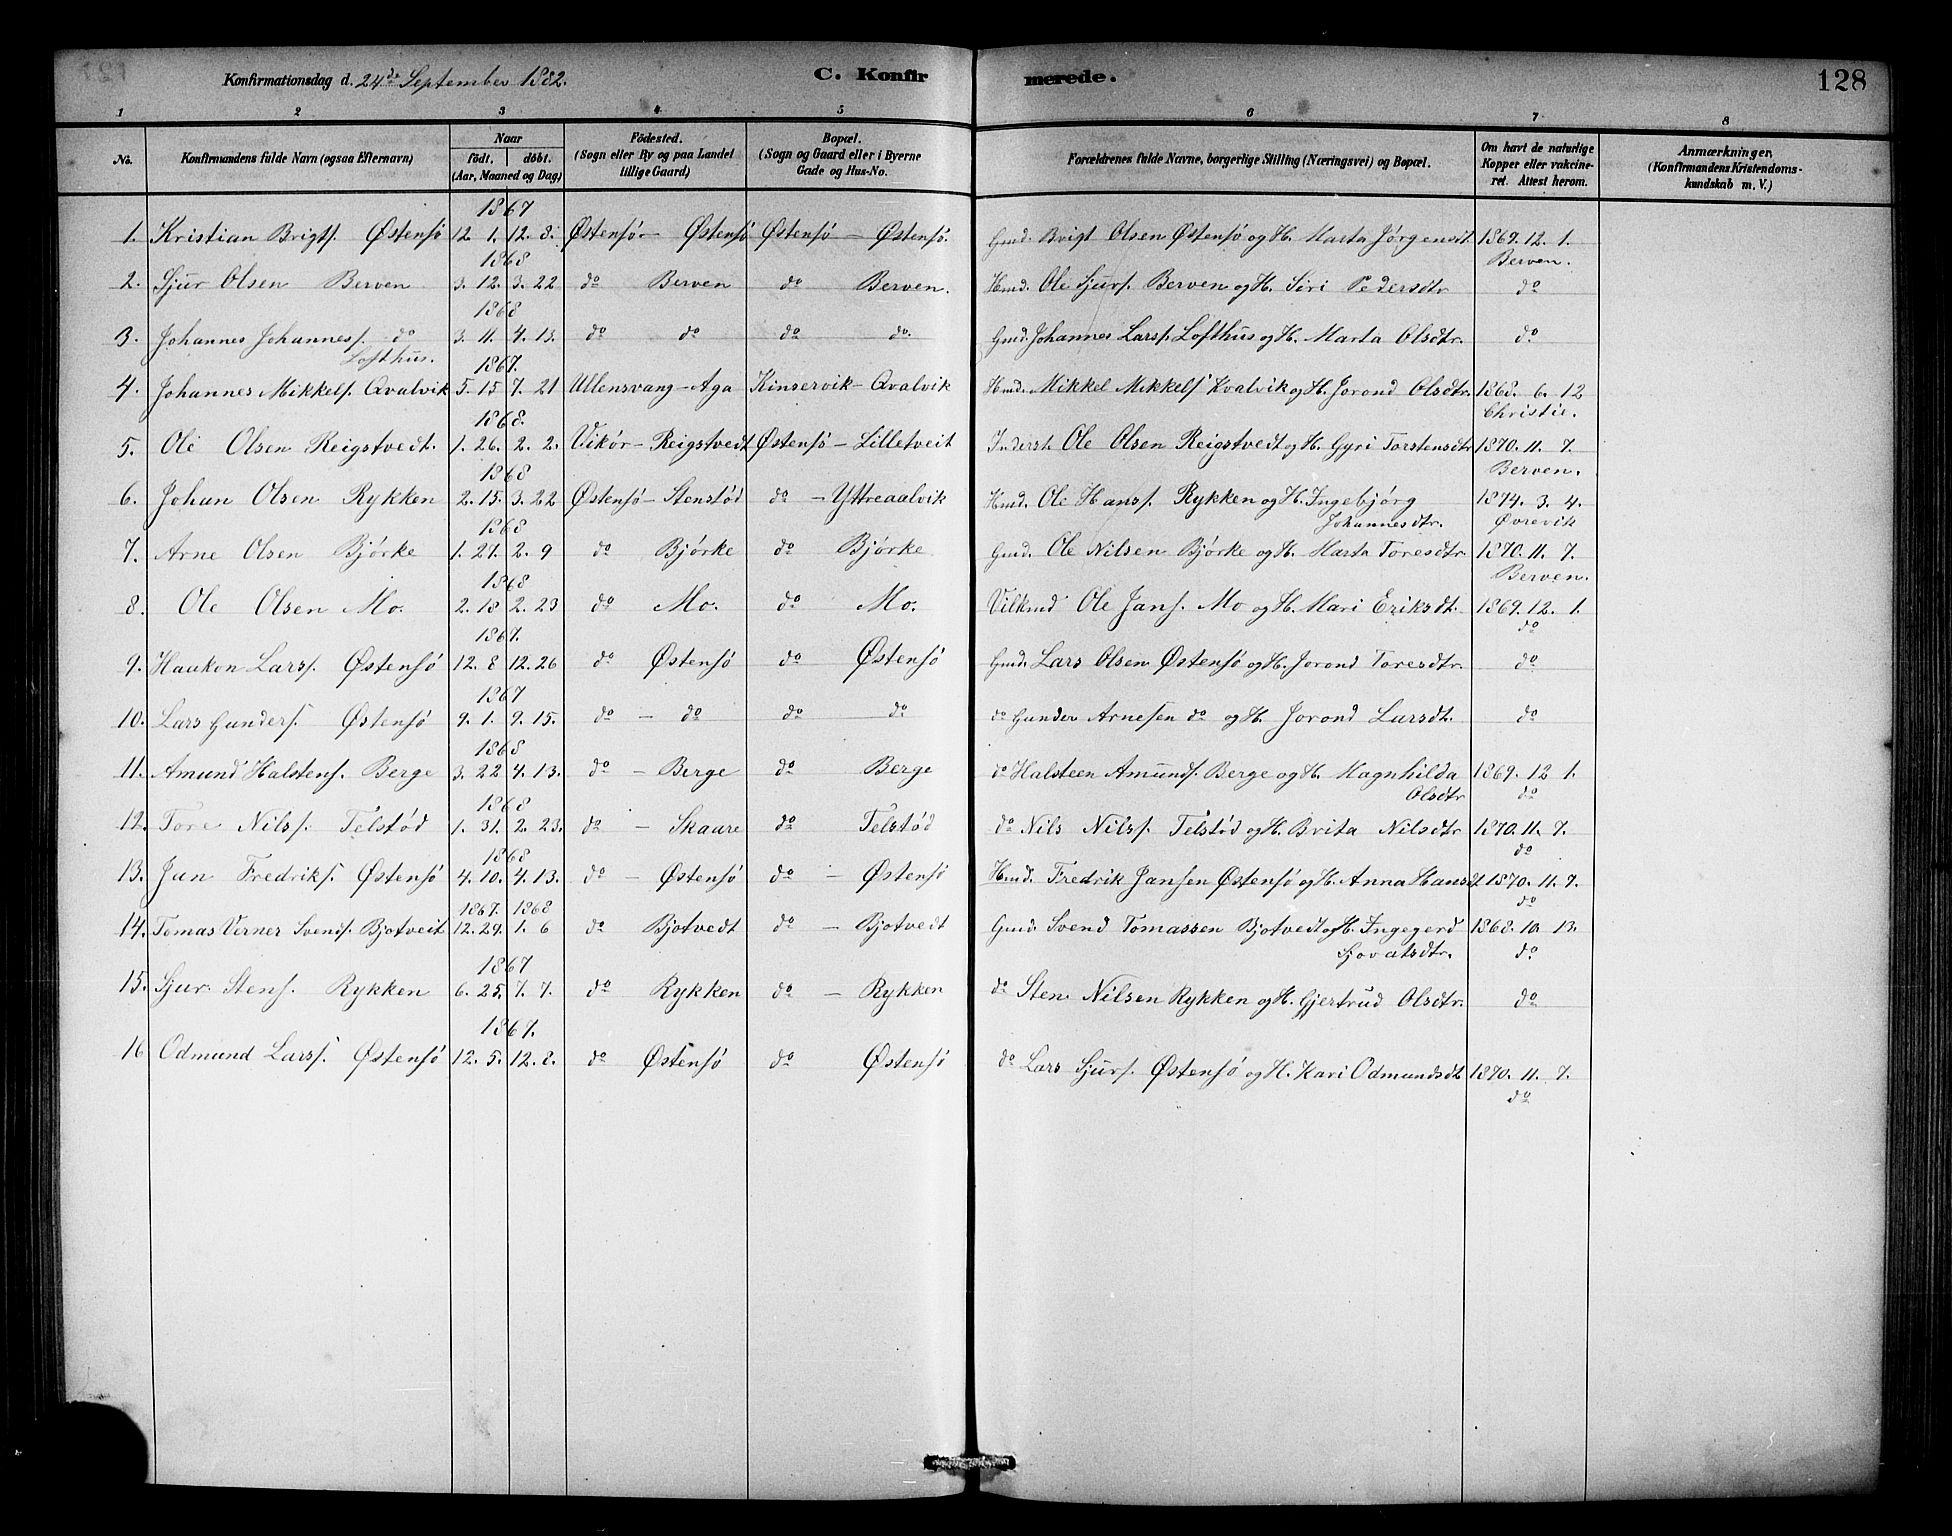 Konfirmationsdag d. 24de September 1882. C. Konfirmerede. 128
1 2 3 4 5 6 7 8
No. Konfirmandens fulde Navn (ogsaa Efternavn) Naar födt. döbt. (Aar, Maaned og Dag) Födested. (Sogn eller By og paa Landet tillige Gaard) Bopæl. (Sogn og Gaard eller i Byerne Gade og Hus-No. Forældrenes fulde Navne, borgerlige Stilling (Næringsvei) og Bopæl. Om havt de naturlige Kopper eller vakcineret. Attest herom. Anmærkninger, (Konfirmandens Kristendomskundskab m. V.)
1867
1. Kristian Brigts. Østensö 12. 1. 12. 8. Østensö - Østensö Østensö - Østensö. Gmd. Brigt Olsen Østensö og H. Marta Jörgensdt. 1869. 12. 1.
Berven.
1868
2. Sjur Olsen Berven 3. 12. 3. 22 do Berven do Berven. Hmd. Ole Sjurs. Berven og H. Siri Pedersdtr do
1868
3. Johannes Johanness. do 3. 11. 4. 13. do do do do. Gmd. Johannes Larss. Lofthus og H. Marta Olsdtr. do
Lofthus.
1867.
4. Johannes Mikkels. Qvalvik 5. 15 7. 21 Ullensvang - Aga Kinservik - Qvalvik Hmd. Mikkel Mikkels. Kvalvik og H. Jorond Olsdtr. 1868. 6. 12
Christie.
1868.
5. Ole Olsen Reigstvedt. 1. 26. 2. 2. Vikör - Reigstvedt Østensö - Lilletveit Inderst. Ole Olsen Reigstvedt og H. Gyri Torstensdtr 1870. 11. 7.
Berven.
1868
6. Johan Olsen Rykken 2. 15. 3. 22 Østensö - Stenstöd do - Yttreaalvik Hmd. Ole Hanss. Rykken og H. Ingebjörg 1874. 3. 4.
Johannesdtr. Øvrevik
1868
7. Arne Olsen Bjørke 1. 27. 2. 9 do Bjørke do Bjørke Gmd. Ole Nilsen Bjørke og H. Marta Toresdtr. 1870. 11. 7.
Berven.
1868
8. Ole Olsen Mo. 2. 18 2. 23 do Mo. do Mo. Ole Jans. Mo og H. Mari Eriksdt. 1869. 12. 1.
do
1867.
9. Haakon Larss. Østensö 12. 8 12. 26 do Østensö do Østensö Gmd. Lars Olsen Østensö og H. Jorond Toresdtr. do
1867
10. Lars Gunders. Østensö 9. 1. 9. 15. do - do do do do Gunder Arnesen do og H. Jorond Larsdt. do
1868
11. Amund Halstens. Berge 3. 22 4. 13. do - Berge do Berge do Halsteen Amunds. Berge og H. Magnhilda 1869. 12 1.
Olsdtr do
1868
12. Tore Nilss. Telstöd 1. 31. 2. 23. do - Skaare do Telstöd do Nils Nilss. Telstöd og H. Brita Nilsdtr 1870. 11. 7.
do
1868
13. Jan Fredriks. Østensö 4. 10. 4. 13. do - Østensö do - Østensö Hmd. Fredrik Jansen Østensö og H. Anna Hansdt 1870. 11. 7.
do
1867. 1868
14. Tomas Verner Svends. Bjotveit 12. 29. 1. 6 do Bjotvedt do - Bjotvedt Gmd. Svend Tomassen Bjotvedt og H. Ingegerd 1868. 10. 13.
Sjovatsdtr. do
1867
15. Sjur Stens. Rykken 6. 25. 7. 7. do Rykken do - Rykken do Sten Nilsen Rykken og H. Gjertrud Olsdtr. do
1867.
16 Odmund Larss. Østensö 12. 5. 12. 8. do Østensö do Østensö do Lars Sjurs. Østensö og H. Kari Odmundsdt 1870. 11. 7.
do